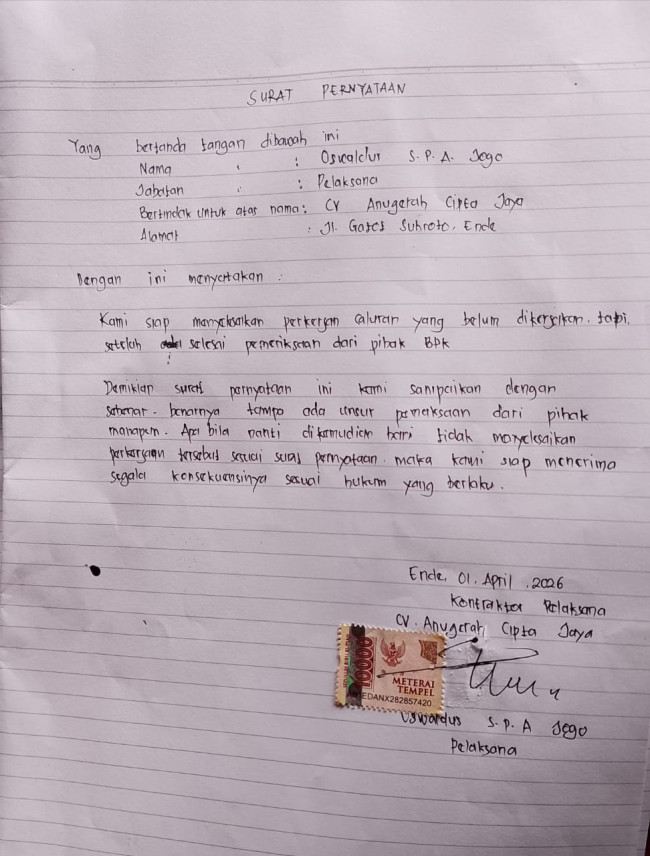 SURAT PERNYATAAN
Yang bertanda tangan dibawah ini
Nama : Oswaldur S. P. A. Jogo
Jabatan : Pelaksana
Bertindak untuk atas nama : CV Anugerah Cipta Jaya
Alamat : Jl. Gatot Subroto, Ende
Dengan ini menyatakan :
Kami siap menyelesaikan perkerjan saluran yang belum dikerjakan. tapi.
setelah selesai pemeriksaan dari pihak BPK
Demikian surat pernyataan ini kami sampaikan dengan
sebenar-benarnya tampa ada unsur pemaksaan dari pihak
manapun. Apa bila nanti dikemudian hari tidak menyelesaikan
perkerjaan tersebut sesuai surat pernyataan. maka kami siap menerima
segala konsekuensinya sesuai hukum yang berlaku.
Ende, 01. April .2026
Kontraktor Pelaksana
CV. Anugerah Cipta Jaya
10000
METERAI
TEMPEL
EDANX282857420
Oswardus S. P. A Jogo
Pelaksana